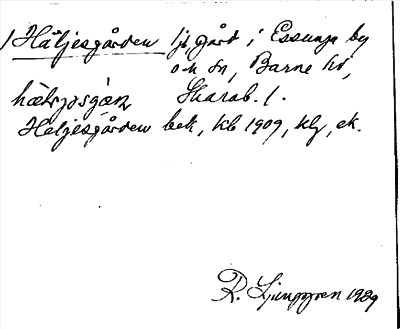 1 Häljesgården 1 jb gård i Essunga by
och sn, Barne hd,
Skarab. l.
Häljesgården bek, kb 1909, klg, ek.
R. Ljunggren 1929